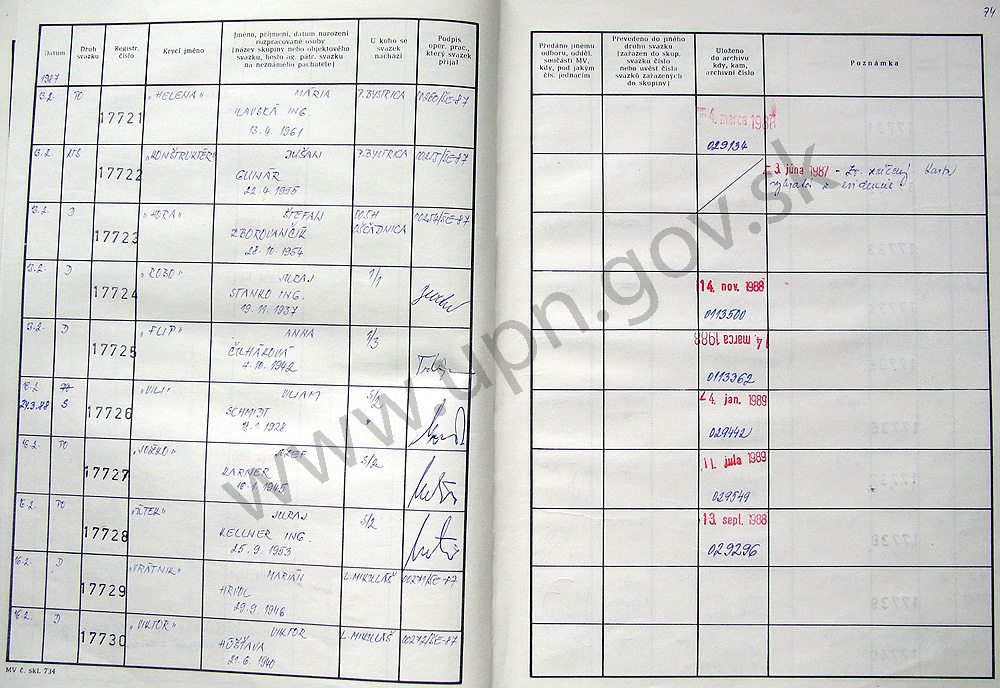 74
Datum
Druh svazku
Registr. číslo
Krycí jméno
Jméno, příjmení, datum narození
rozpracované osoby
(název skupiny nebo objektového
svazku, heslo ag. pátr. svazku
na neznámého pachatele)
U koho se
svazek
nachází
Podpis
oper. prac.,
který svazek
přijal
Předáno jinému
odboru, odděl.
součásti MV,
kdy, pod jakým
čís. jednacím
Převedeno do jiného
druhu svazku
(zařazen do skup.
svazku číslo
nebo uvést čísla
svazků zařazených
do skupiny)
Uloženo
do archivu
kdy, kam,
archivní číslo
Poznámka
1987
13.2. PO 17721 „HELENA" MÁRIA P. BYSTRICA 00260/ŠE-87
ILAVSKÁ ING.
13. 4. 1961
4. marca 1988
029134
13.2. 17722 „KONŠTRUKTÉR" DUŠAN P. BYSTRICA
GUNÁR
22. 4. 1955
3. júna 1987
13.2. D 17723 „HORA" ŠTEFAN OOSH OŠČADNICA 00254/ŠE-87
ZBOROVANČÍK
28. 10. 1954
13.2. D 17724 „ROBO" JURAJ 1/1
STANKO ING.
19. 11. 1937
14. nov. 1988
0113500
13.2. D 17725 „FLIP" ANNA 1/3
7. 10. 1942
4. marca 1988
0113362
16.2. 17726 „VILI" VILIAM 5/2
24.3.88 S SCHMIDT "
1928
24. jan. 1989
029442
16.2. PO 17727 „JOŽKO" JOZEF 5/2
KARNER
16. 1. 1945
11. júla 1989
029549
16.2. PO 17728 JURAJ 5/2
KELLNER ING.
25. 9. 1953
13. sept. 1988
029296
16.2. D 17729 „VRÁTNIK" MARIÁN L. MIKULÁŠ 00271/ŠE-87
HRIVOL
29. 9. 1946
16.2. D 17730 „VIKTOR" VIKTOR L. MIKULÁŠ 00272/ŠE-87
HÚŠŤAVA
21. 6. 1940
MV č. skl. 734
www.upn.gov.sk